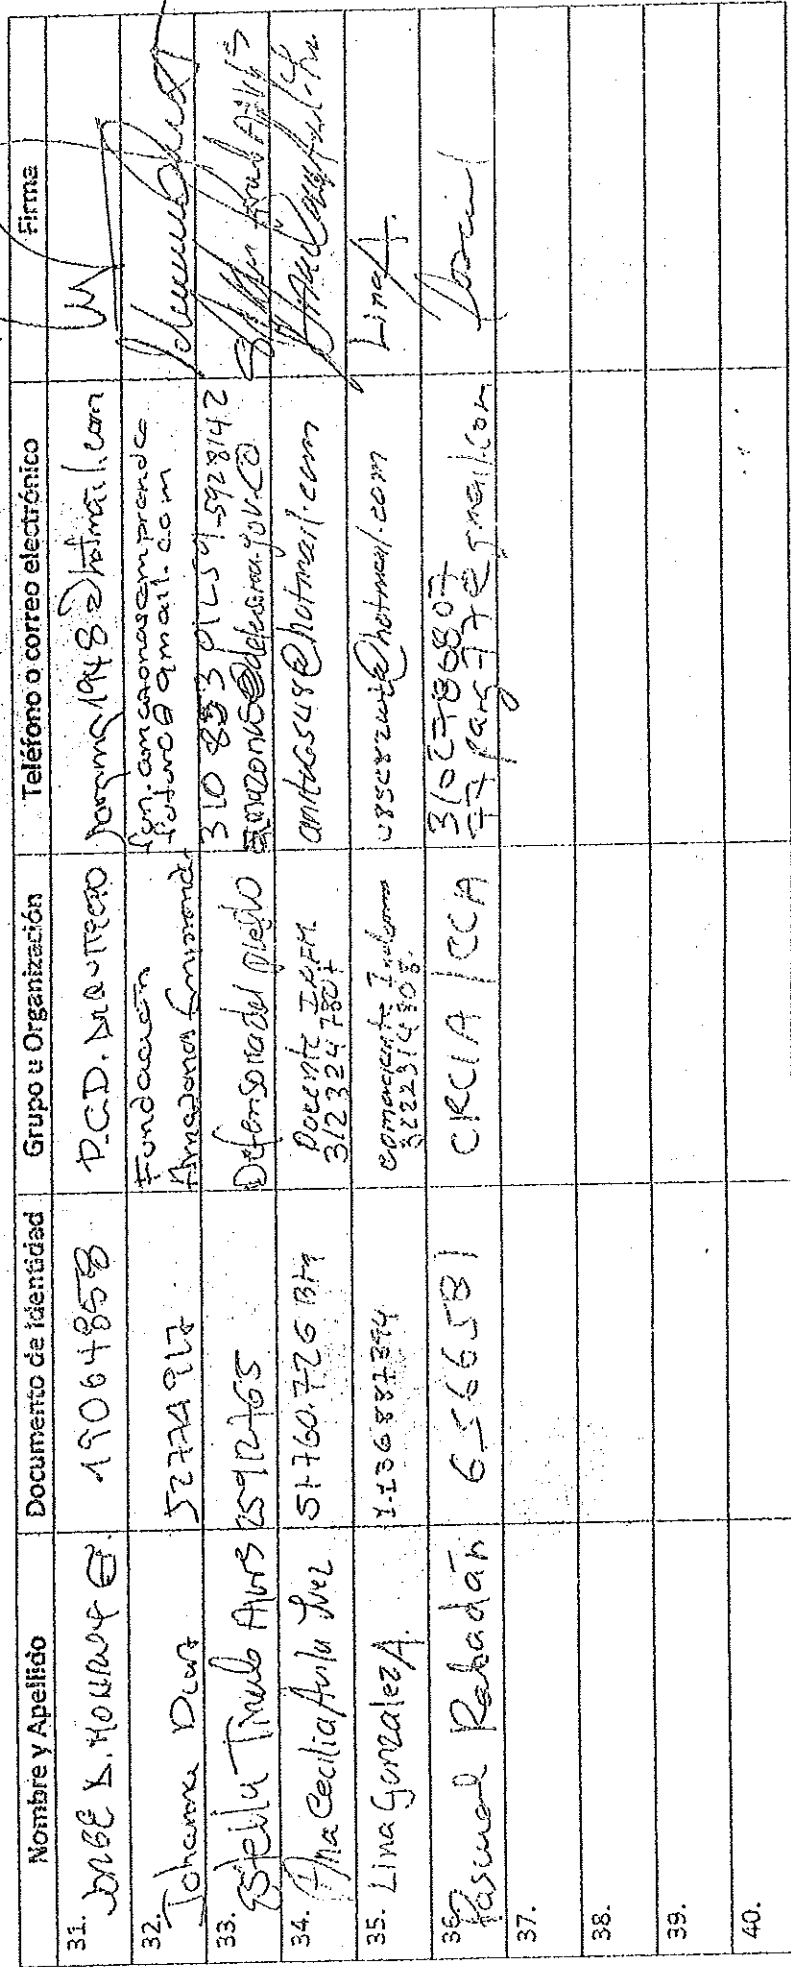 Nombre y Apellido Documento de identidad Grupo u Organización Teléfono o correo electrónico Firma
31. JORGE D. 19064858 P.C.D. jorgma1948@hotmail.com
32. Johanna Diaz 52774917 Fundación Amazonas Emprende fun.amazonasemprende
futuro@gmail.com
33. Estella Tinulo 25912765 Defensoria del pueblo 310 853 01259-5928142
amazonas@defensoria.gov.co
34. Ana Cecilia Avila 51.760.726 Btá Docente INEM
3123247807 anita6548@hotmail.com
35. Lina Gonzalez A. 1.136887394 comerciante
3222314308. @hotmail.com Lina A.
36. Pascual Rahadán 6566581 CRCIA / CCA 3102786807
77pars77@gmail.com
37.
38.
39.
40.